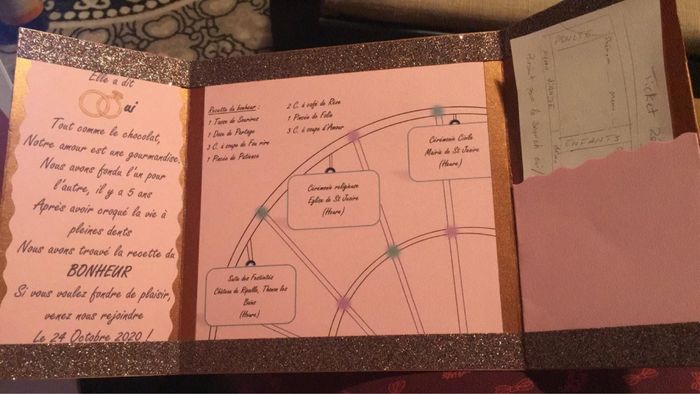 Elle a dit
oui
Tout comme le chocolat,
Notre amour est une gourmandise.
Nous avons fondu l'un pour
l'autre, il y a 5 ans
Après avoir croqué la vie à
pleines dents
Nous avons trouvé la recette du
BONHEUR
Si vous voulez fondre de plaisir,
venez nous rejoindre
Le 24 Octobre 2020 !
Recette du bonheur :
1 Tasse de Sourires
1 Dose de Partage
3 C. à soupe de Fou rire
1 Pincée de Patience
2 C. à café de Rêve
1 Pincée de Folie
3 C. à soupe d'Amour
Cérémonie Civile
Mairie de St Jeoire
(Heure)
Cérémonie religieuse
Eglise de St Jeoire
(Heure)
Suite des Festivités
Château de Ripaille, Thonon les
Bains
(Heure)
Ticket
ADULTE
ENFANTS